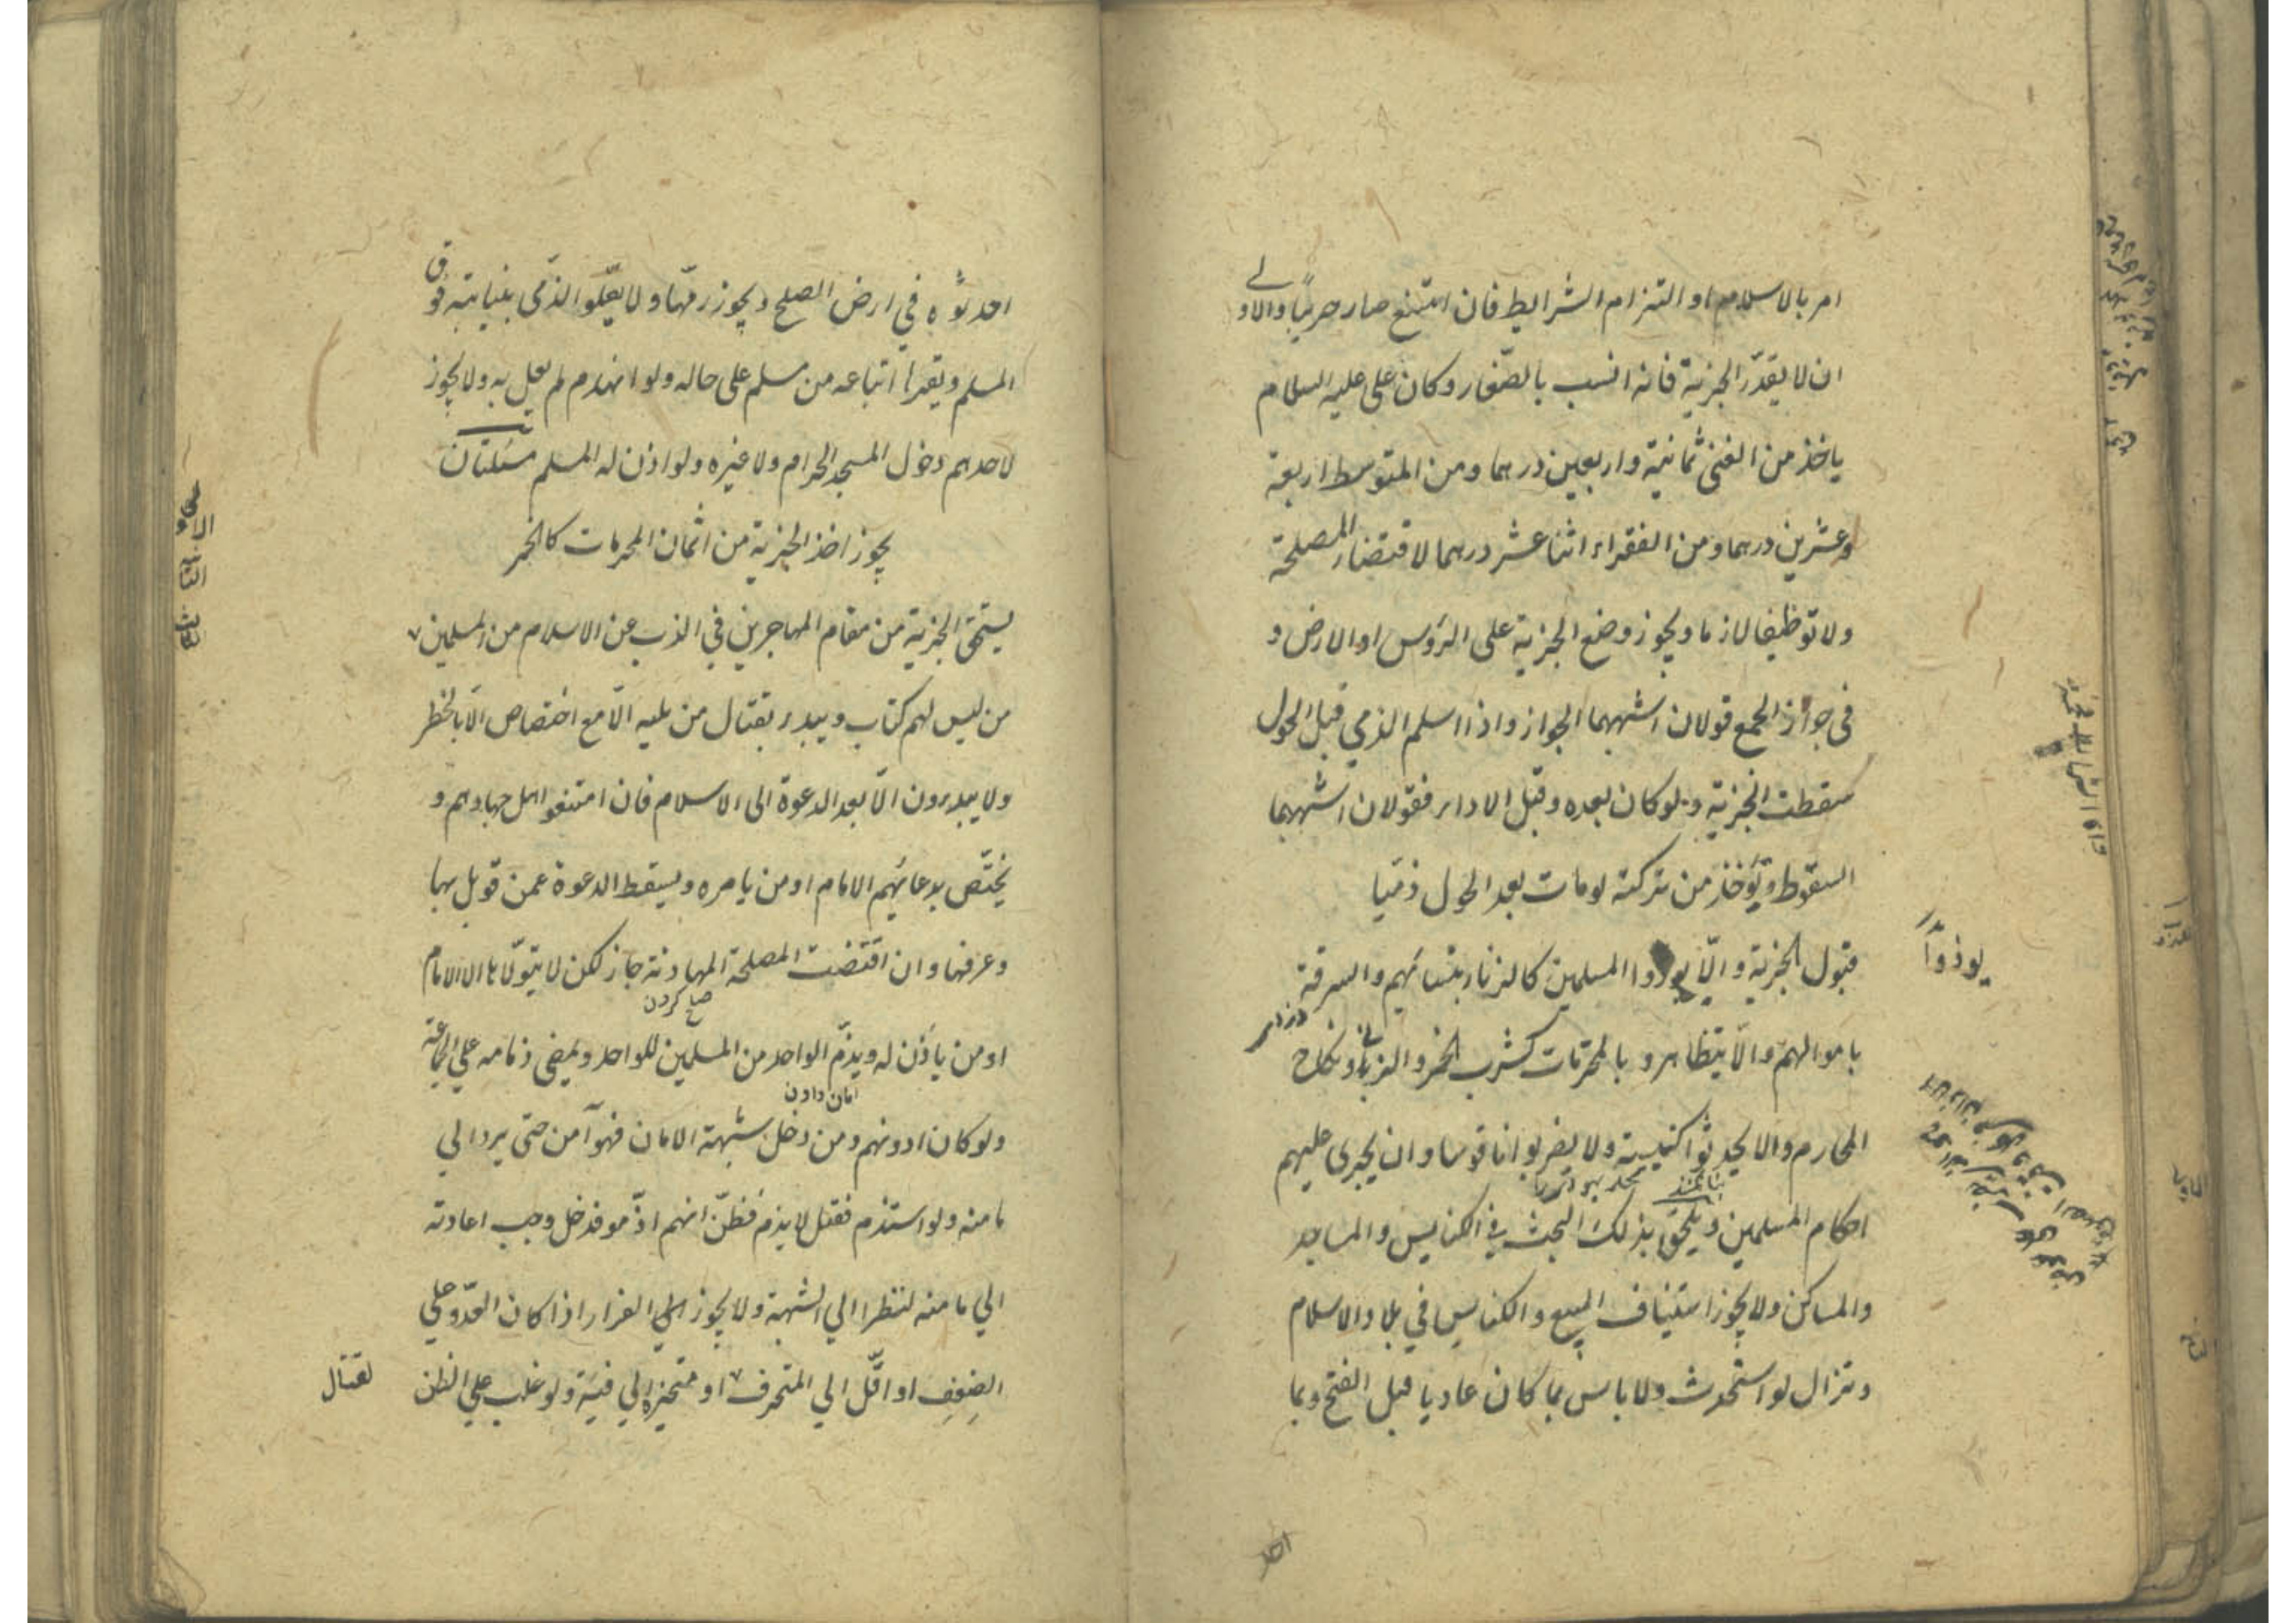 امر بالاسلام او التزام الشرايط فان امتنع صار حربيا والاولے
ان لا يقدّر الجزية فانه انسب بالصّغار وكان علي عليه السلام
ياخذ من الغنى ثمانية واربعين درهما ومن المتوسط اربعة
وعشرين درهما ومن الفقراء اثنا عشر درهما لاقتضاء المصلحة
ولا توظيفا لازما ويجوز وضع الجزية على الرؤس او الارض و
فى جواز الجمع قولان اشبههما الجواز واذا اسلم الذمي قبل الحول
سقطت الجزية ولو كان بعده وقبل الاداء فقولان اشبههما
السقوط ويؤخذ من تركته لو مات بعد الحول ذمّيا
قبول الجزية والّا يوذوا المسلمين كالزنا بنسائهم والسرقة
يوذوا
باموالهم والا يتظاهروا بالمحرمات كشرب الخمر والزنا ونكاح
المحارم والا يحدثوا كنيسة ولا يضربوا ناقوسا وان يجرى عليهم
احكام المسلمين ويلحق بذلك البحث في الكنايس والمساجد
والمساكن ولا يجوز استيناف البيع والكنايس في بلاد الاسلام
وتزال لو استحدث ولا باس بما كان عاديا قبل الفتح وبما
احد
احدثوه في ارض الصلح ويجوز رمّها ولا يعلو الذمى ببنيانه فوق
المسلم ويقر ما ابتاعه من مسلم على حاله ولو انهدم لم يعل به ولا يجوز
لاحدهم دخول المسجد الحرام ولا غيره ولو اذن له المسلم مسئلتان
يجوز اخذ الجزية من اثمان المحرمات كالخمر
يستحق الجزية من مقام المهاجرين في الذب عن الاسلام من المسلمين
من ليس لهم كتاب ويبدء بقتال من يليه الّا مع اختصاص الابعد بالخطر
ولا يبدءون الّا بعد الدعوة الى الاسلام فان امتنعوا حل جهادهم و
يختّص بدعائهم الامام او من يامره ويسقط الدعوة عمن قوتل بها
وعرفها وان اقتضت المصلحة المهادنة جاز لكن لا يتولّاها الا الامام
صلح كردن
او من ياذن له ويذمّ الواحد من المسلمين للواحد ويمضى ذمامه علي الجماعة
امان دادن
ولو كان ادونهم ومن دخل بشبهة الامان فهو آمن حتى يرد الي
مامنه ولو استذم فقيل لا يذم فظنّ انهم اذمّوه فدخل وجب اعادته
الي مامنه نظرا الي الشبهة ولا يجوز الفرار اذا كان العدّو علي
الضعف او اقّل الي المتحرف او متحيزا الي فئة ولو غلب علي الظن
لقتال